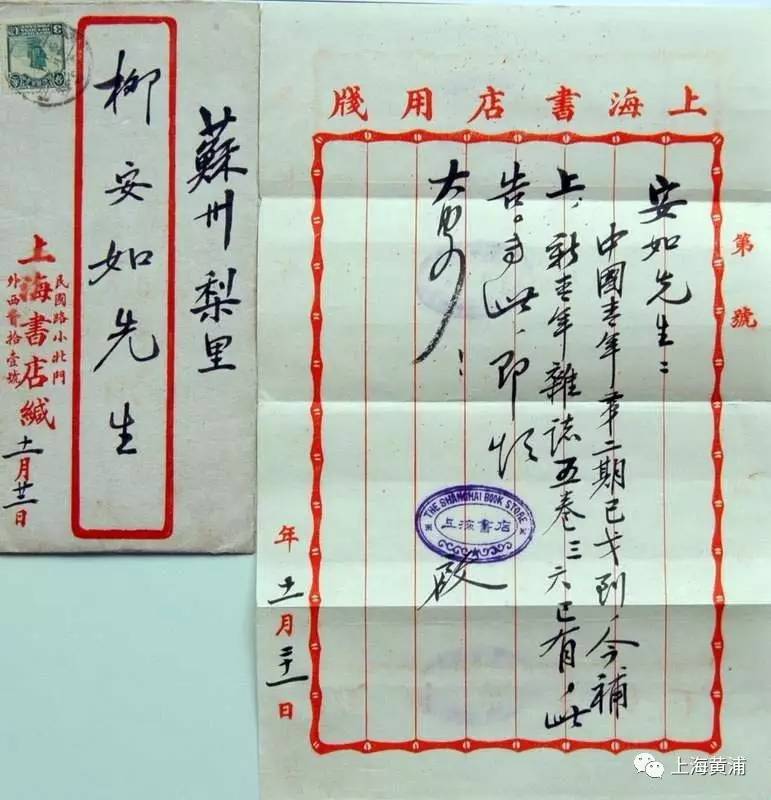 蘇州梨里
柳安如先生
民國路小北門
外西首拾壹號
上海書店緘
十一月廿一日
上海書店用牋
第 號
安如先生：
中國青年第二期已才到，今補
上，新青年雜誌五卷三六已有。此
告。專此，即頌
THE SHANGHAI BOOK STORE
上海書店
啟
年十一月二十一日
上海黄浦